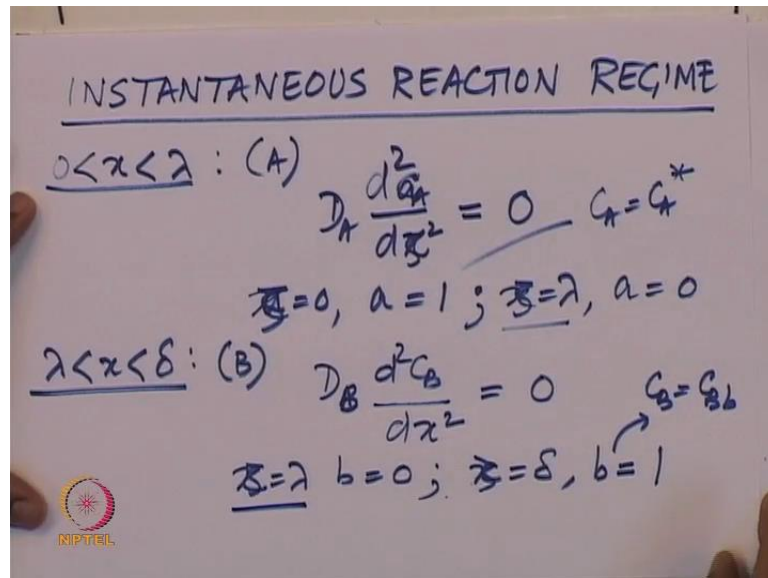 INSTANTANEOUS REACTION REGIME
0<x<λ : (A)
D_A d²C_A/dx² = 0   C_A = C_A*
x=0, a=1 ; x=λ, a=0
λ<x<δ : (B)
D_B d²C_B/dx² = 0   C_B = C_Bb
x=λ b=0 ; x=δ, b=1
NPTEL